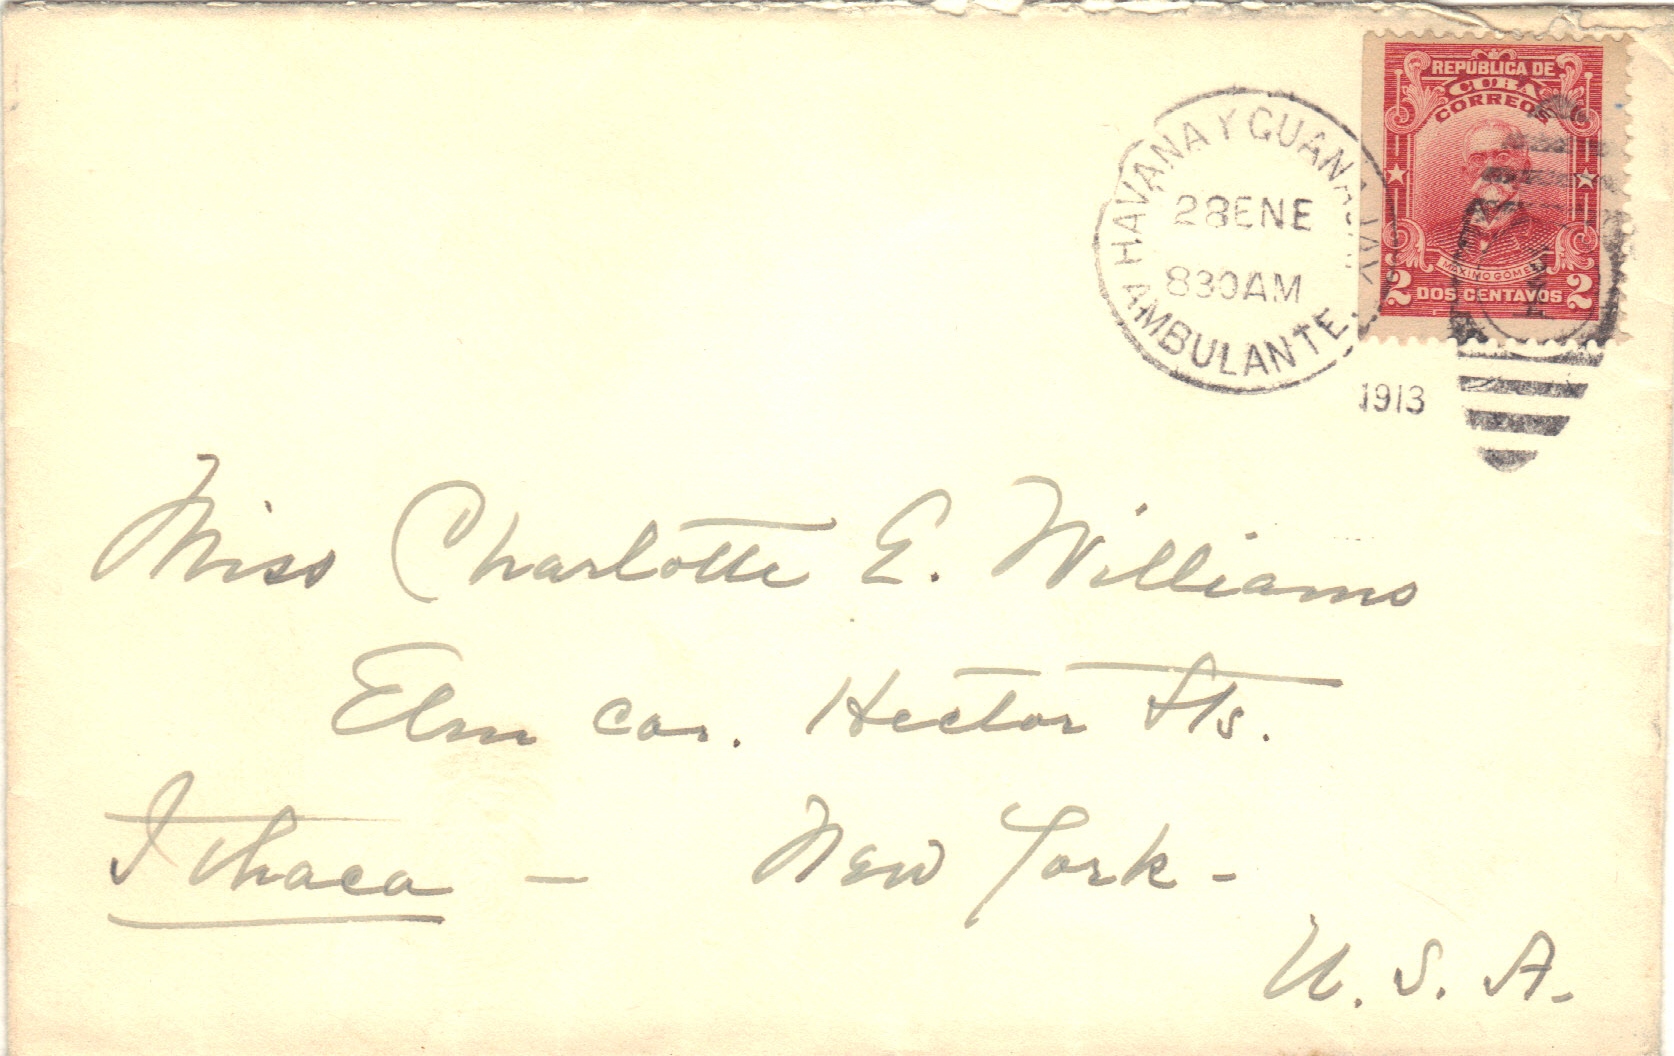 REPÚBLICA DE
CUBA
CORREOS
MAXIMO GOMEZ
2 DOS CENTAVOS 2
HAVANA Y GUANAJAY
28 ENE
830AM
AMBULANTE.
1913
Miss Charlotte E. Williams
Elm cor. Hector Sts.
Ithaca — New York -
U. S. A.